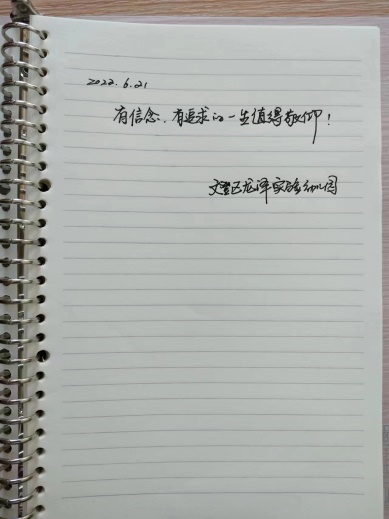 2022.6.21
有信念、有追求的一生值得敬仰！
文登区龙泽实验幼儿园